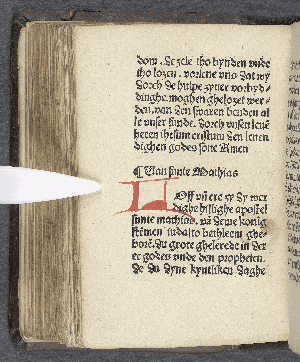 dom. De ziele tho bynden vnde
tho lozen. vorlene vns dat wy
dorch de hulpe zyner vorbyd-
dinghe moghen ghelozet wer-
den. van den swaren benden al
le vnser sunde. Dorch vnsen leuē
heren ihesum cristum den leuen
dighen godes sone Amen
¶ Van sunte Mathias
Off vn̄ ere zy dy wer
dighe hillighe apostel
sunte mathias. vā deme konig
stēmen iuda to bethleem ghe-
borē. Du grote ghelerede in der
ee godes vnde den propheten.
de du dyne kyntliken daghe